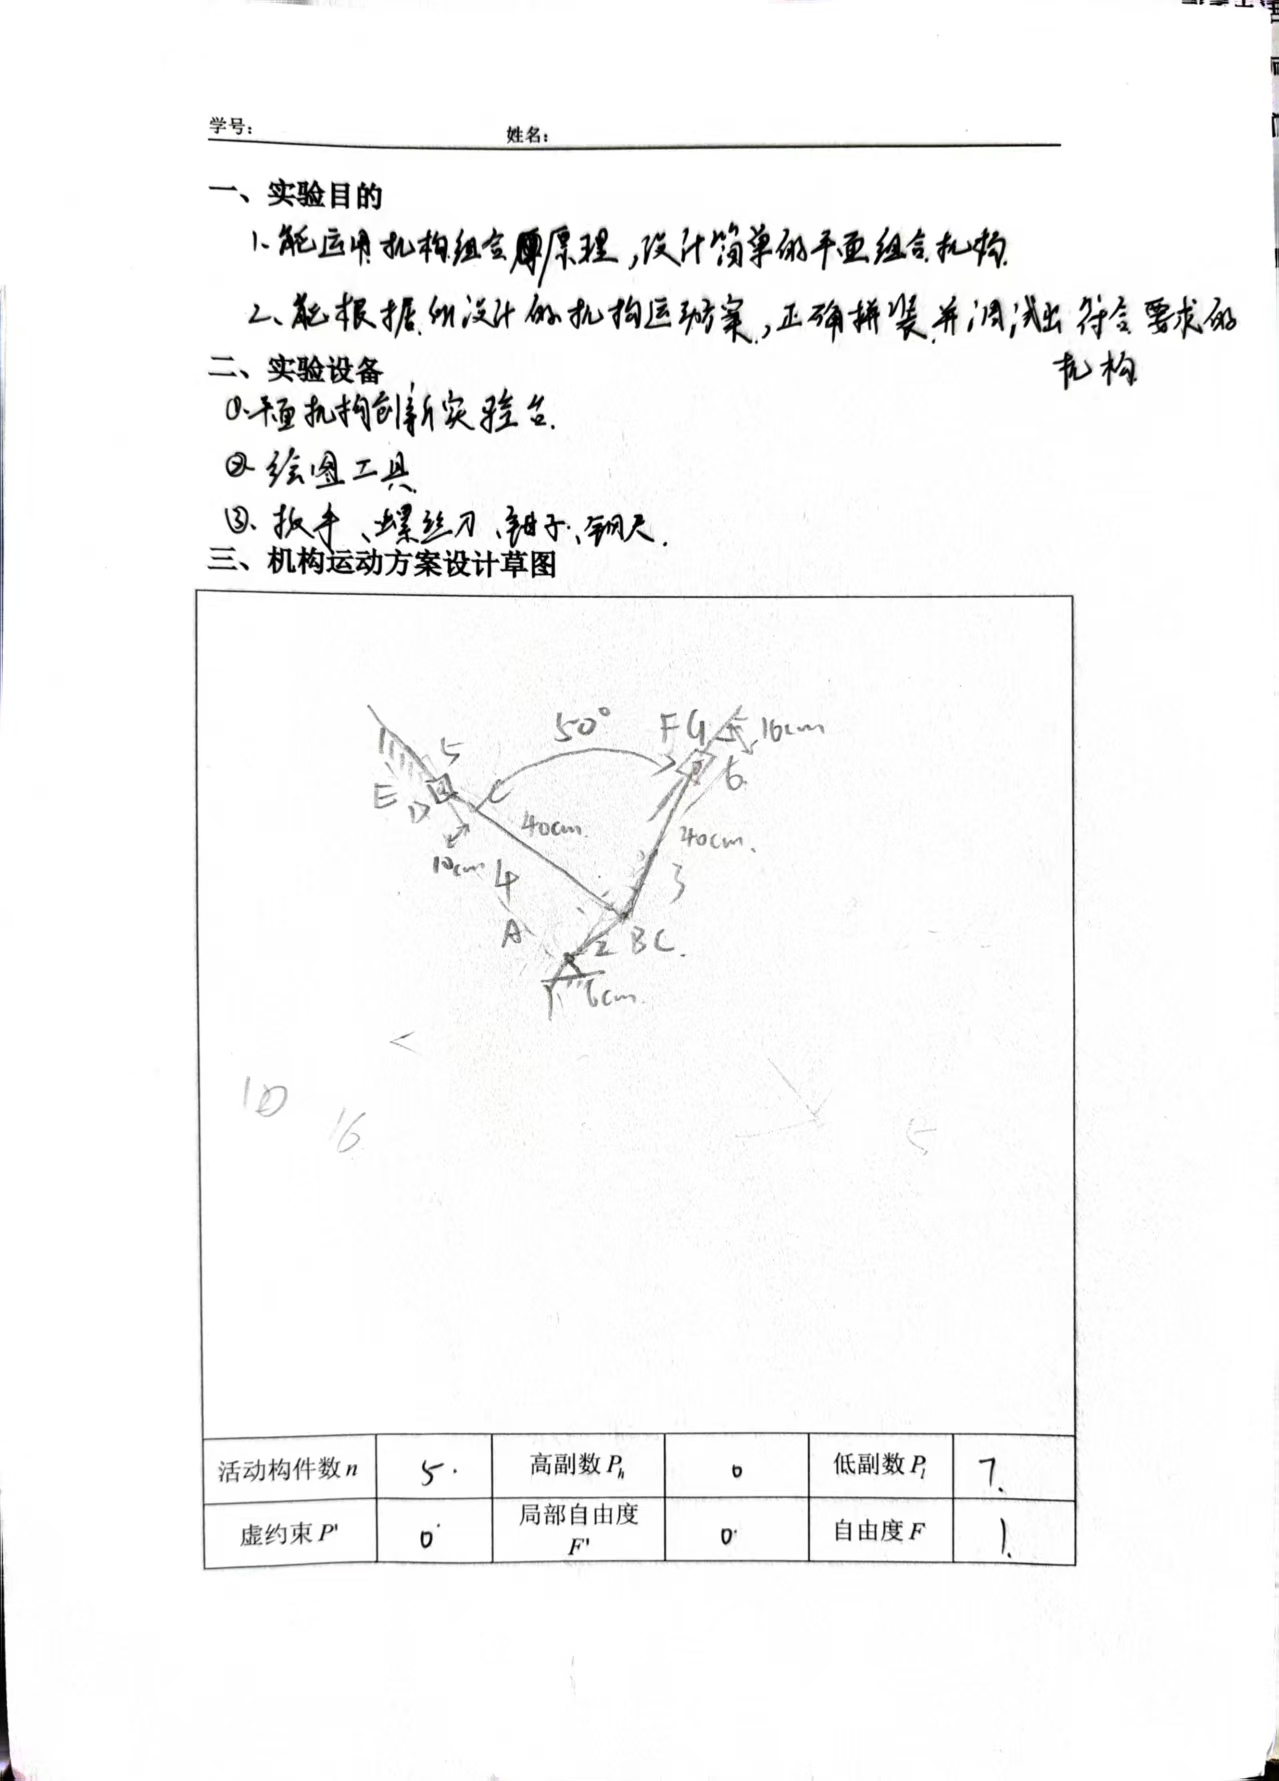 学号:
姓名:
一、实验目的
1.能运用机构组合原理,设计简单的平面组合机构.
2、能根据所设计的机构运动方案,正确拼装并调试出符合要求的
机构
二、实验设备
①.平面机构创新实验台.
②绘图工具
③.扳手、螺丝刀、钳子、钢尺.
三、机构运动方案设计草图
50°
F G
10cm
5
6
E
D
C
40cm.
40cm.
10cm
4
3
A
2
B C.
1
6cm.
10
16
活动构件数 n 5. 高副数 Pₕ 0 低副数 Pₗ 7.
虚约束 P' 0 局部自由度 F' 0 自由度 F 1.